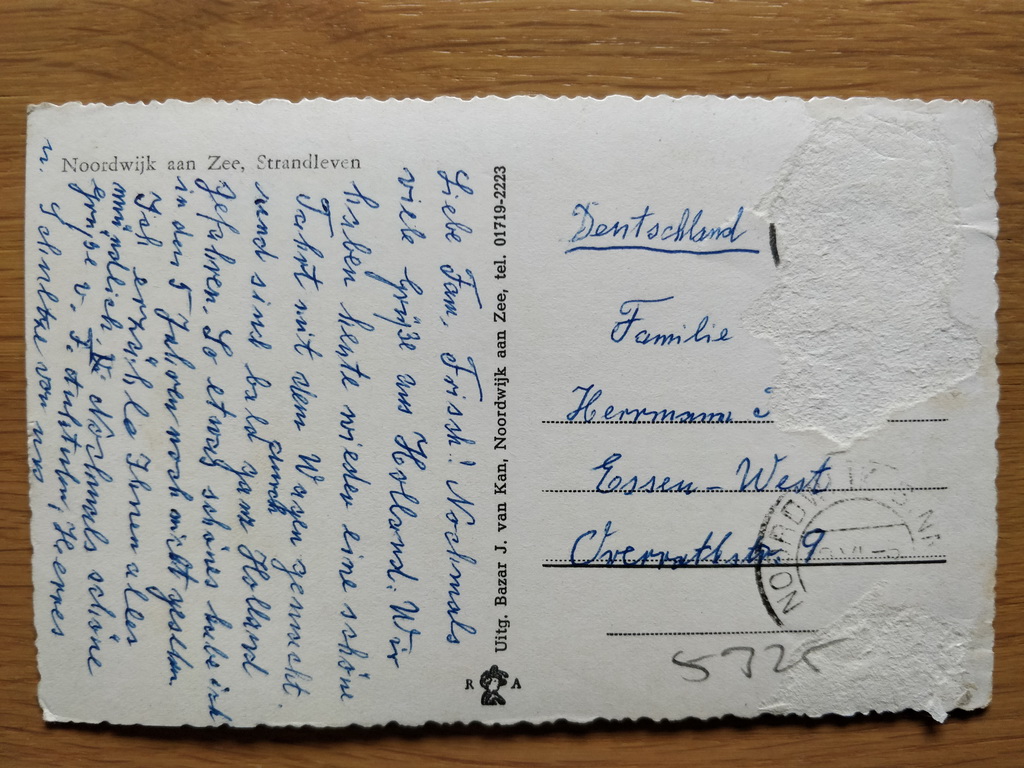 Noordwijk aan Zee, Strandleven
Liebe Fam. Frisch! Nochmals
viele Grüße aus Holland. Wir
haben heute wieder eine schöne
Fahrt mit dem Wagen gemacht
und sind bald durch ganz Holland
gefahren. So etwas schönes habe ich
in den 5 Jahren noch nicht gesehen
Ich erzähle Ihnen alles
mündlich. Nochmals schöne
Grüße v. F.
u. Schultze von
Uitg. Bazar J. van Kan, Noordwijk aan Zee, tel. 01719-2223
R A
Deutschland
Familie
Herrmann
Essen-West
Overrathstr. 9
5325